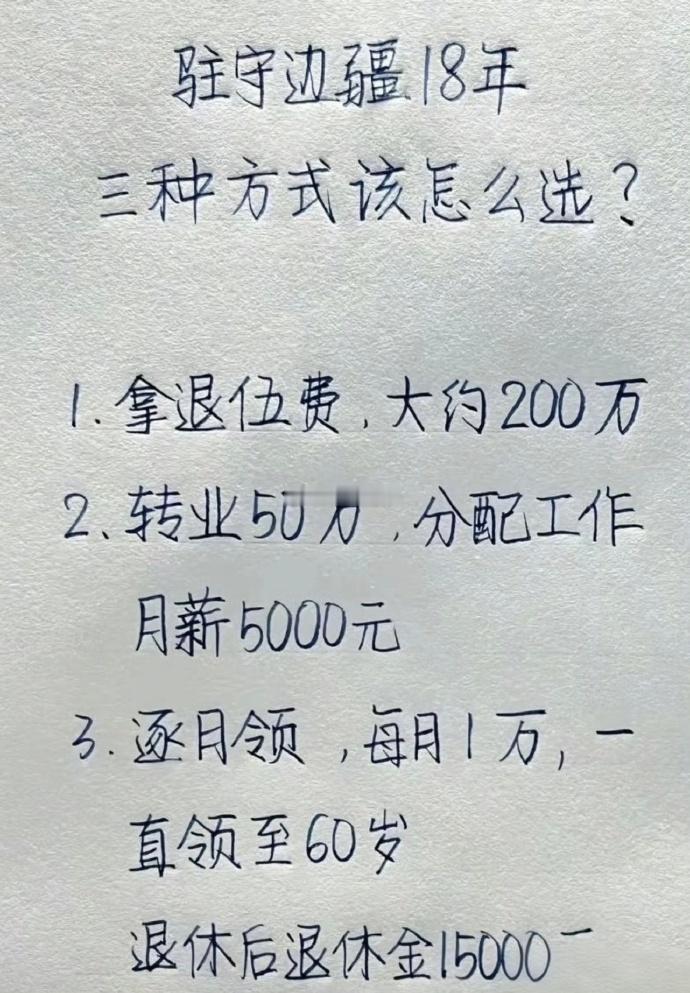 驻守边疆18年
三种方式该怎么选？
1.拿退伍费，大约200万
2、转业50万，分配工作
月薪5000元
3.逐月领，每月1万，一
直领至60岁
退休后退休金15000一